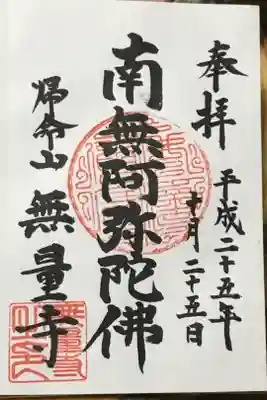 奉拝
平成二十五年
十月二十五日
南無阿弥陀佛
帰命山
無量寺